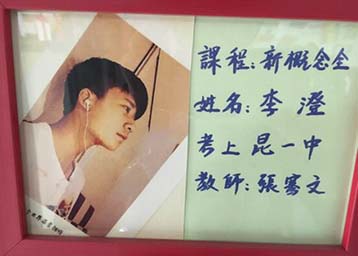 課程:新概念全
姓名:李 澄
考上 昆一中
教師:張騫文